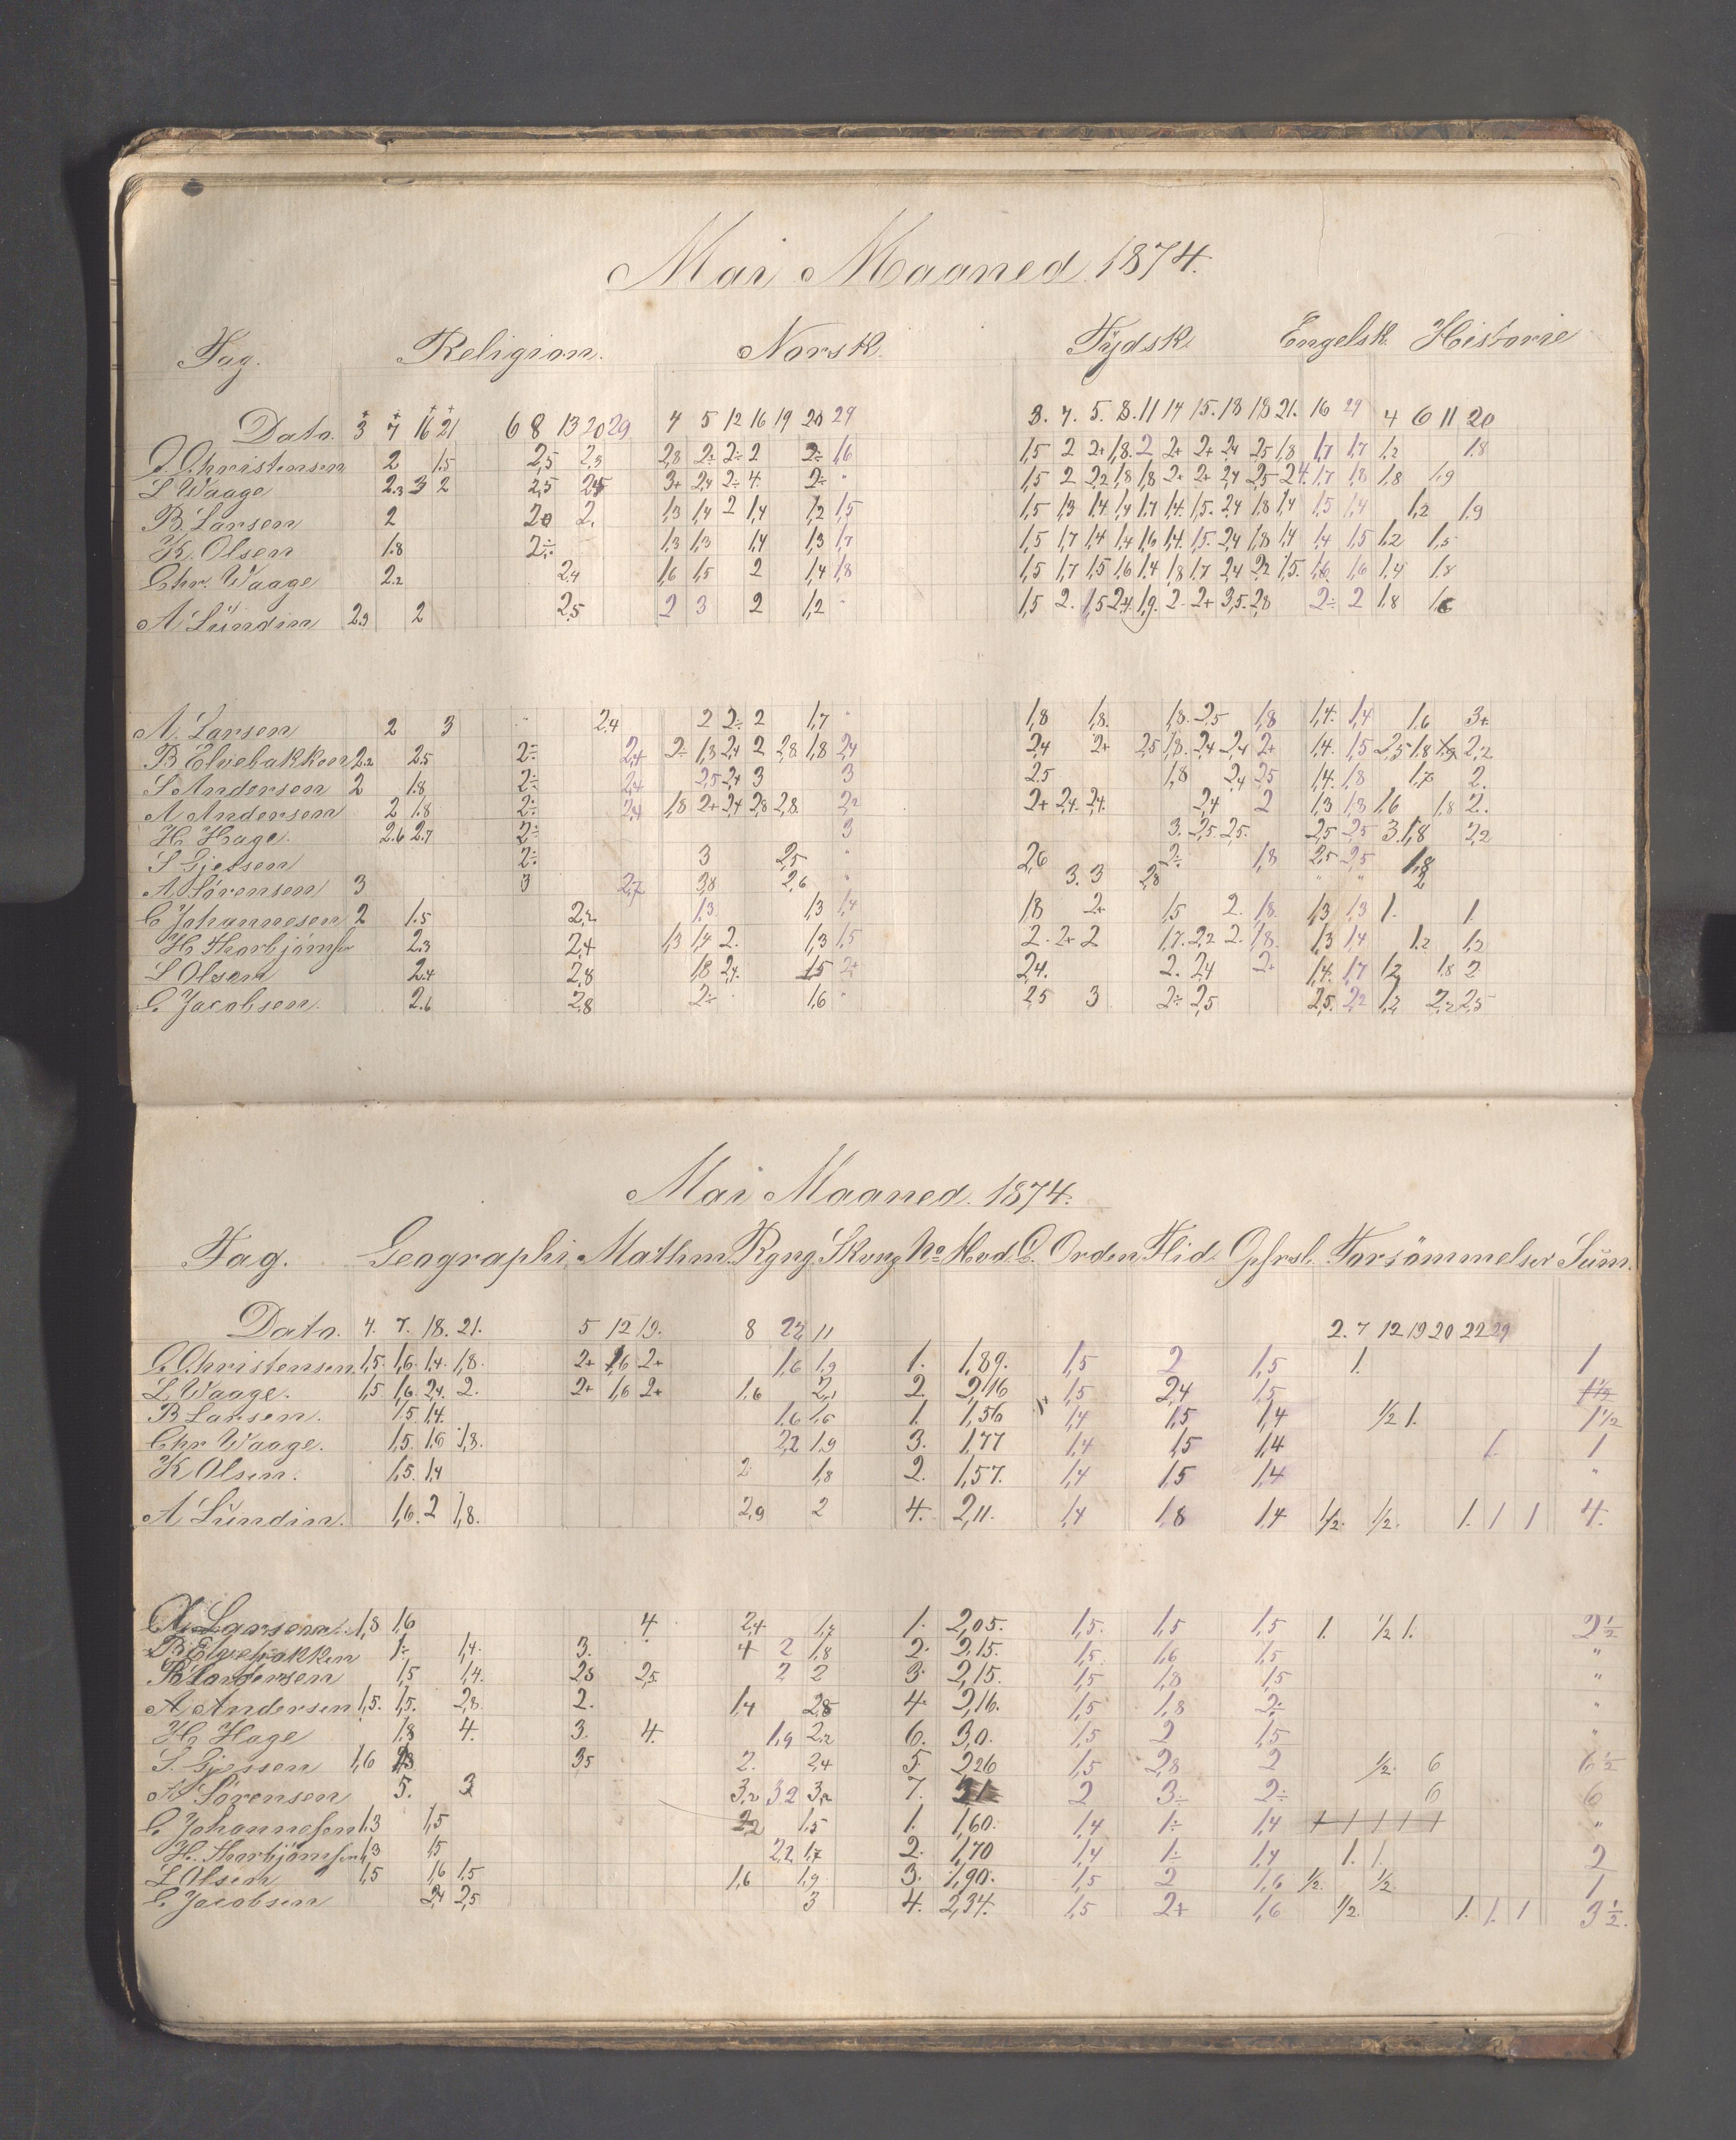 Mai Maaned 1874.
Fag. Religion. Norsk. Tydsk Engelsk Historie
Dato. 3 7 16 21 6 8 13 20 29 4 5 12 16 19 20 29 3. 4. 5. 8. 11 14 15. 18 18 21. 16 29 4 6 11 20
Christensen 2 1.5 2,5 2,3 2,8 2÷ 2÷ 2 2÷ 1,6 1,5 2 2+ 1,8. 2 2+ 2+ 2,4 2,5 1,8 1,7 1,7 1,2 1.8
L Waage 2.3 3 2 2,5 3+ 2,4 2÷ 4. 2÷ " 1,5 2 2,2 1,8 1,8 2+ 2+ 2,4 2,5 2,4. 1,7 1,8 1,8 1,9
B. Larsen 2 2. 1,3 1,4 2 1,4 1,2 1,5 1,5 1,3 1,4 1,4 1,7 1,4. 1,5. 2,4 1,8 1,4 1,5 1,4 1,2 1,9
K. Olsen 1.8 2÷ 1,3 1,3 1,4 1,3 1,7 1,5 1,7 1,4 1,4 1,6 1,4. 1,5. 2,4 1,8 1,4 1,4 1,5 1,2 1,5
Chr. Waage 2.2 2,4 1,6 1,5 2 1,4 1,8 1,5 1,7 1,5 1,6 1,4 1,8 1,7 2,4 2,2 1,5. 1,6 1,6 1,4 1,8
A Lündin 2.3 2 2,5 2 3 2 1,2 " 1,5 2. 1,5 2,4. 1,9. 2 2+ 3,5. 2,8 2÷ 2 1,8
A. Larsen 2 3 " 2,4 2 2÷ 2 1,7 " 1,8 1,8. 1,8. 2,5 1,8 1,4. 1,4 1,6 3+
B Elvebakken 2.2 2.5 2÷ 2,4 2÷ 1,8 2,4 2 2,8 1,8 2,4 2,4 2+ 2,5 1,8. 2,4 2,4 2+ 1,4. 1,5 2,5 1,8 1,9 2,2
S Andersen 2 1.8 2÷ 2,4 2,5 2,4 3 3 2,5 1,8 2,4 2,5 1,4. 1,8 1,7 2.
A Andersen 2 1.8 2÷ 2,4 1,8 2+ 2,4 2,8 2,8 2,2 2+ 2,4. 2,4. 2,4 2 1,3 1,3 1,6 1,8 2.
H. Hage. 2.6 2.7 2÷ 3 3. 2,5. 2,5. 2,5 2,5 3. 1,8 2,2
S Gjessen 2÷ 3 2,5 " 2,6 2÷ 1,8 2,5 2,5 1,8
A. Sörensen 3 3 2,7 3,8 2,6 " 3. 3 2,8 " " 2
C Johannesen 2 1.5 2,2 1,3. 1,3 1,4 1,8 2+ 1,5 2. 1,8. 1,3 1,3 1. 1.
H. Thorbjörnsen 2.3 2,4 1,3 1,4 2. 1,3 1,5 2. 2+ 2 1,7. 2,2 2. 1,8. 1,3 1,4 1,2 1,2
L Olsen 2.4 2,8 1,8 2,4. 1,5 2+ 2,4. 2. 2,4 2+ 1,4. 1,7 1,2 1,8 2
C Jacobsen. 2.6 2,8 2÷ 1,6 " 2,5 3 2÷ 2,5 2,5. 2,2 1,2 2,2 2,5
Mai Maaned. 1874.
Fag. Geographi. Mathm. Rgng. Skvng No Hvd. C. Orden Flid Opfrsl. Forsömmelser Sum.
Dato. 4. 7. 18. 21. 5 12 19. 8 22 11 2. 7 12 19 20 22 29
C. Christensen. 1,5. 1,6. 1,4. 1,8. 2+ 1,6 2+ 1,6 1,9 1. 1,89. 1,5 2 1,5 1. 1
L Waage. 1,5 1,6. 2,4. 2. 2+ 1,6 2+ 1,6 2,1 2. 2,16 1,5 2,4 1,5 1½
B Larsen. 1,5 1,4. 1,6 1,6 1. 1,56 1,4 1,5 1,4 ½ 1. 1½
Chr Waage. 1,5. 1,6 1,8. 2,2 1,9 3. 1,77 1,4 1,5 1,4 1. 1
K Olsen. 1,5. 1,4 2 1,8 2. 1,57. 1,4 1,5 1,4 "
A Lündin. 1,6. 2 1,8. 2,9 2 4. 2,11. 1,4 1,8 1,4 ½. ½. 1. 1 1 4.
A. Larsen. 1,8 1,6 4 2,4 1,7 1. 2,05. 1,5. 1,5 1,5 1. ½ 1. 2½
B Elvebakken 1÷ 1,4. 3. 4 2 1,8 2. 2,15. 1,5. 1,6 1,5 "
Andersen 1,5 1,4. 2,8 2,5. 2 2 3. 2,15. 1,5 1,8 1,5 "
A Andersen 1,5. 1,5. 2,8. 2. 1,4 2,8 4. 2,16. 1,5 1,8 2÷ "
H. Hage 1,8 4. 3. 4. 1,9 2,2 6. 3,0. 1,5 2 1,5 "
S. Gjessen 1,6 3,5 2. 2,4 5. 2,26 1,5 2,8 2 ½. 6 6½
A Sörensen 5. 3 3,2 3,2 3,2 7. 2 3÷ 2÷ 6 6
C Johannesen 1,3 1,5 2,2 1,5 1. 1,60. 1,4 1÷ 1,4 1 1 1 1 1 "
H. Thorbjörnsen 1,3 1,5 2,2 1,7 2. 1,70 1,4 1÷ 1,4 1. 1. 2
L Olsen 1,5 1,6 1,5 1,6 1,9 3. 1,90. 1,5 2 1,6 ½. ½. 1
C Jacobsen 2,4 2,5 3 4. 2,34. 1,5 2+ 1,6 ½ 1. 1. 1 3½.